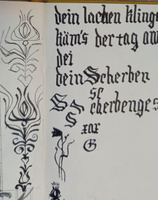 dein lachen klinge
käm's der tag an
dei
dein Scherben
S se
S cherbenges
S xar
G